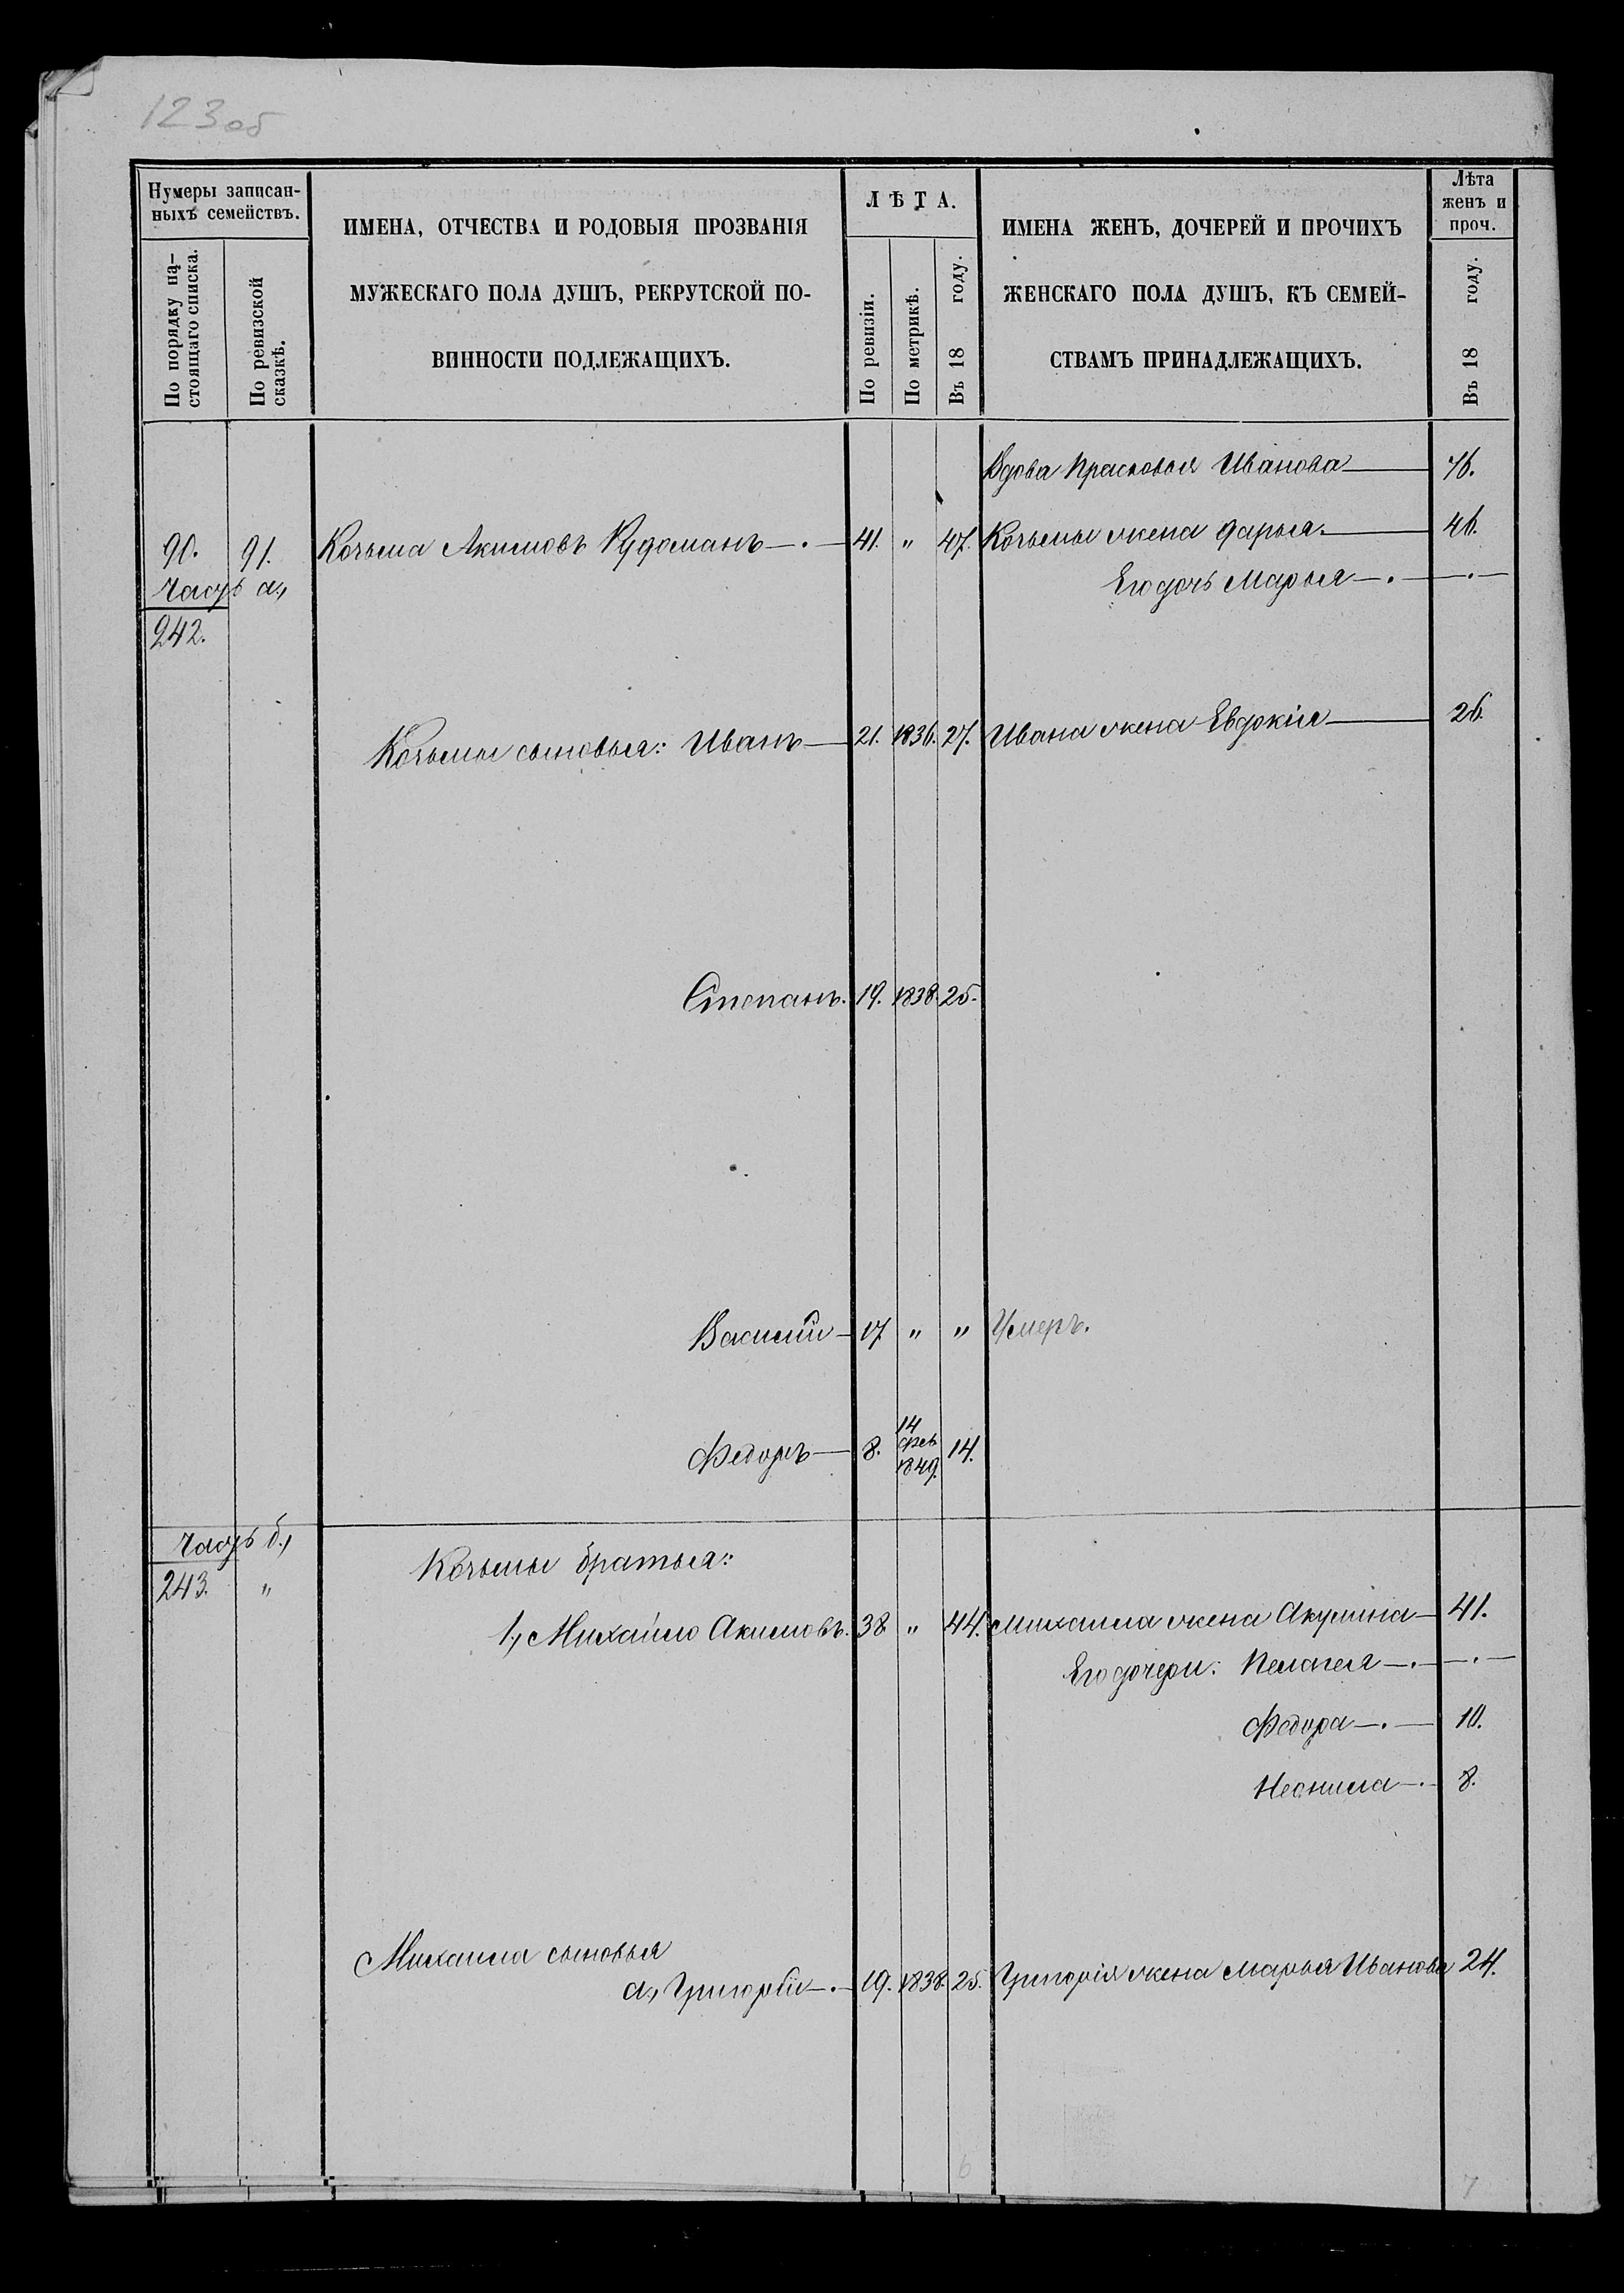 123 об
Нумеры записан-
ныхъ семействъ.
По порядку на-
стоящаго списка.
По ревизской
сказкѣ.
ИМЕНА, ОТЧЕСТВА И РОДОВЫЯ ПРОЗВАНІЯ
МУЖЕСКАГО ПОЛА ДУШЪ, РЕКРУТСКОЙ ПО-
ВИННОСТИ ПОДЛЕЖАЩИХЪ.
ЛѢТА.
По ревизіи.
По метрикѣ.
Въ 18 году.
ИМЕНА ЖЕНЪ, ДОЧЕРЕЙ И ПРОЧИХЪ
ЖЕНСКАГО ПОЛА ДУШЪ, КЪ СЕМЕЙ-
СТВАМЪ ПРИНАДЛЕЖАЩИХЪ.
Лѣта
женъ и
проч.
Въ 18 году.
Вдова Прасковья Иванова — 76.
90. 91. Козьма Акимовъ —.— 41. " 47. Козьмы жена Дарья.— 46.
Часть а.,
Его дочь Марья —.— —.—
242.
Козьмы сыновья: Иванъ — 21. 1836. 27. Ивана жена Евдокія — 26.
Степанъ. 19. 1838. 25.
Василій — 17 " " Умеръ.
Федоръ — 8. 14 Фев 1849. 14.
Часть б.,
243. "
Козьмы братья:
1., Михайло Акимовъ. 38 " 44. Михаила жена Акулина — 41.
Его дочери: Пелагея —.— —.—
Федора —.— 10.
Неонила —.— 8.
Михаила сыновья
а., Григорій —.— 19. 1838. 25. Григорія жена Марья Иванова 24.
6
7